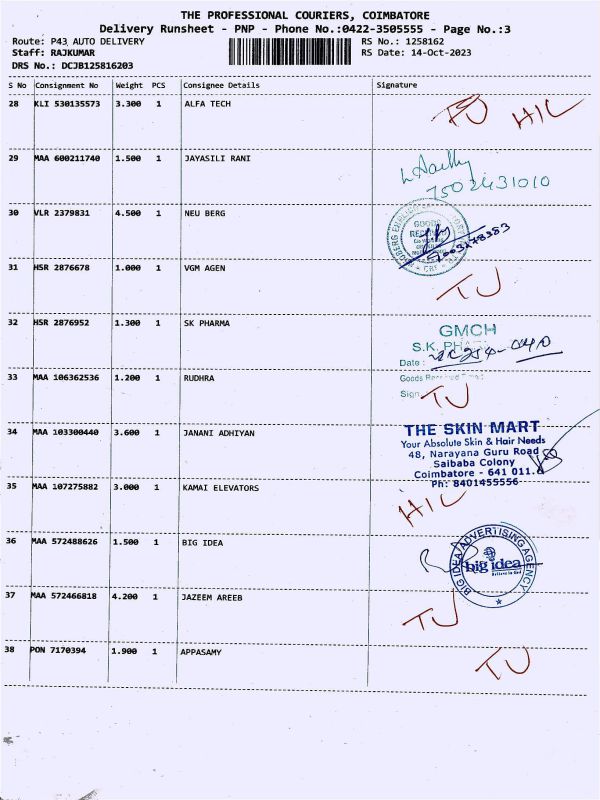 THE PROFESSIONAL COURIERS, COIMBATORE
Delivery Runsheet - PNP - Phone No.:0422-3505555 - Page No.:3
Route: P43 AUTO DELIVERY RS No.: 1258162
Staff: RAJKUMAR RS Date: 14-Oct-2023
DRS No.: DCJB125816203
S No Consignment No Weight PCS Consignee Details Signature
28 KLI 530135573 3.300 1 ALFA TECH
HIL
29 MAA 600211740 1.500 1 JAYASILI RANI
7502431010
30 VLR 2379831 4.500 1 NEU BERG
GOODS
31 HSR 2876678 1.000 1 VGM AGEN
TU
32 HSR 2876952 1.300 1 SK PHARMA
GMCH
S.K. PHAR
Date :
33 MAA 106362536 1.200 1 RUDHRA
Goods
Sign
TU
34 MAA 103300440 3.600 1 JANANI ADHIYAN
THE SKIN MART
Your Absolute Skin & Hair Needs
48, Narayana Guru Road
Saibaba Colony
Coimbatore - 641 011.
Ph: 8401455556
35 MAA 107275882 3.000 1 KAMAI ELEVATORS
HIL
36 MAA 572488626 1.500 1 BIG IDEA
BIG IDEA ADVERTISING AGENCY
big idea
37 MAA 572466818 4.200 1 JAZEEM AREEB
TU
38 PON 7170394 1.900 1 APPASAMY
TU